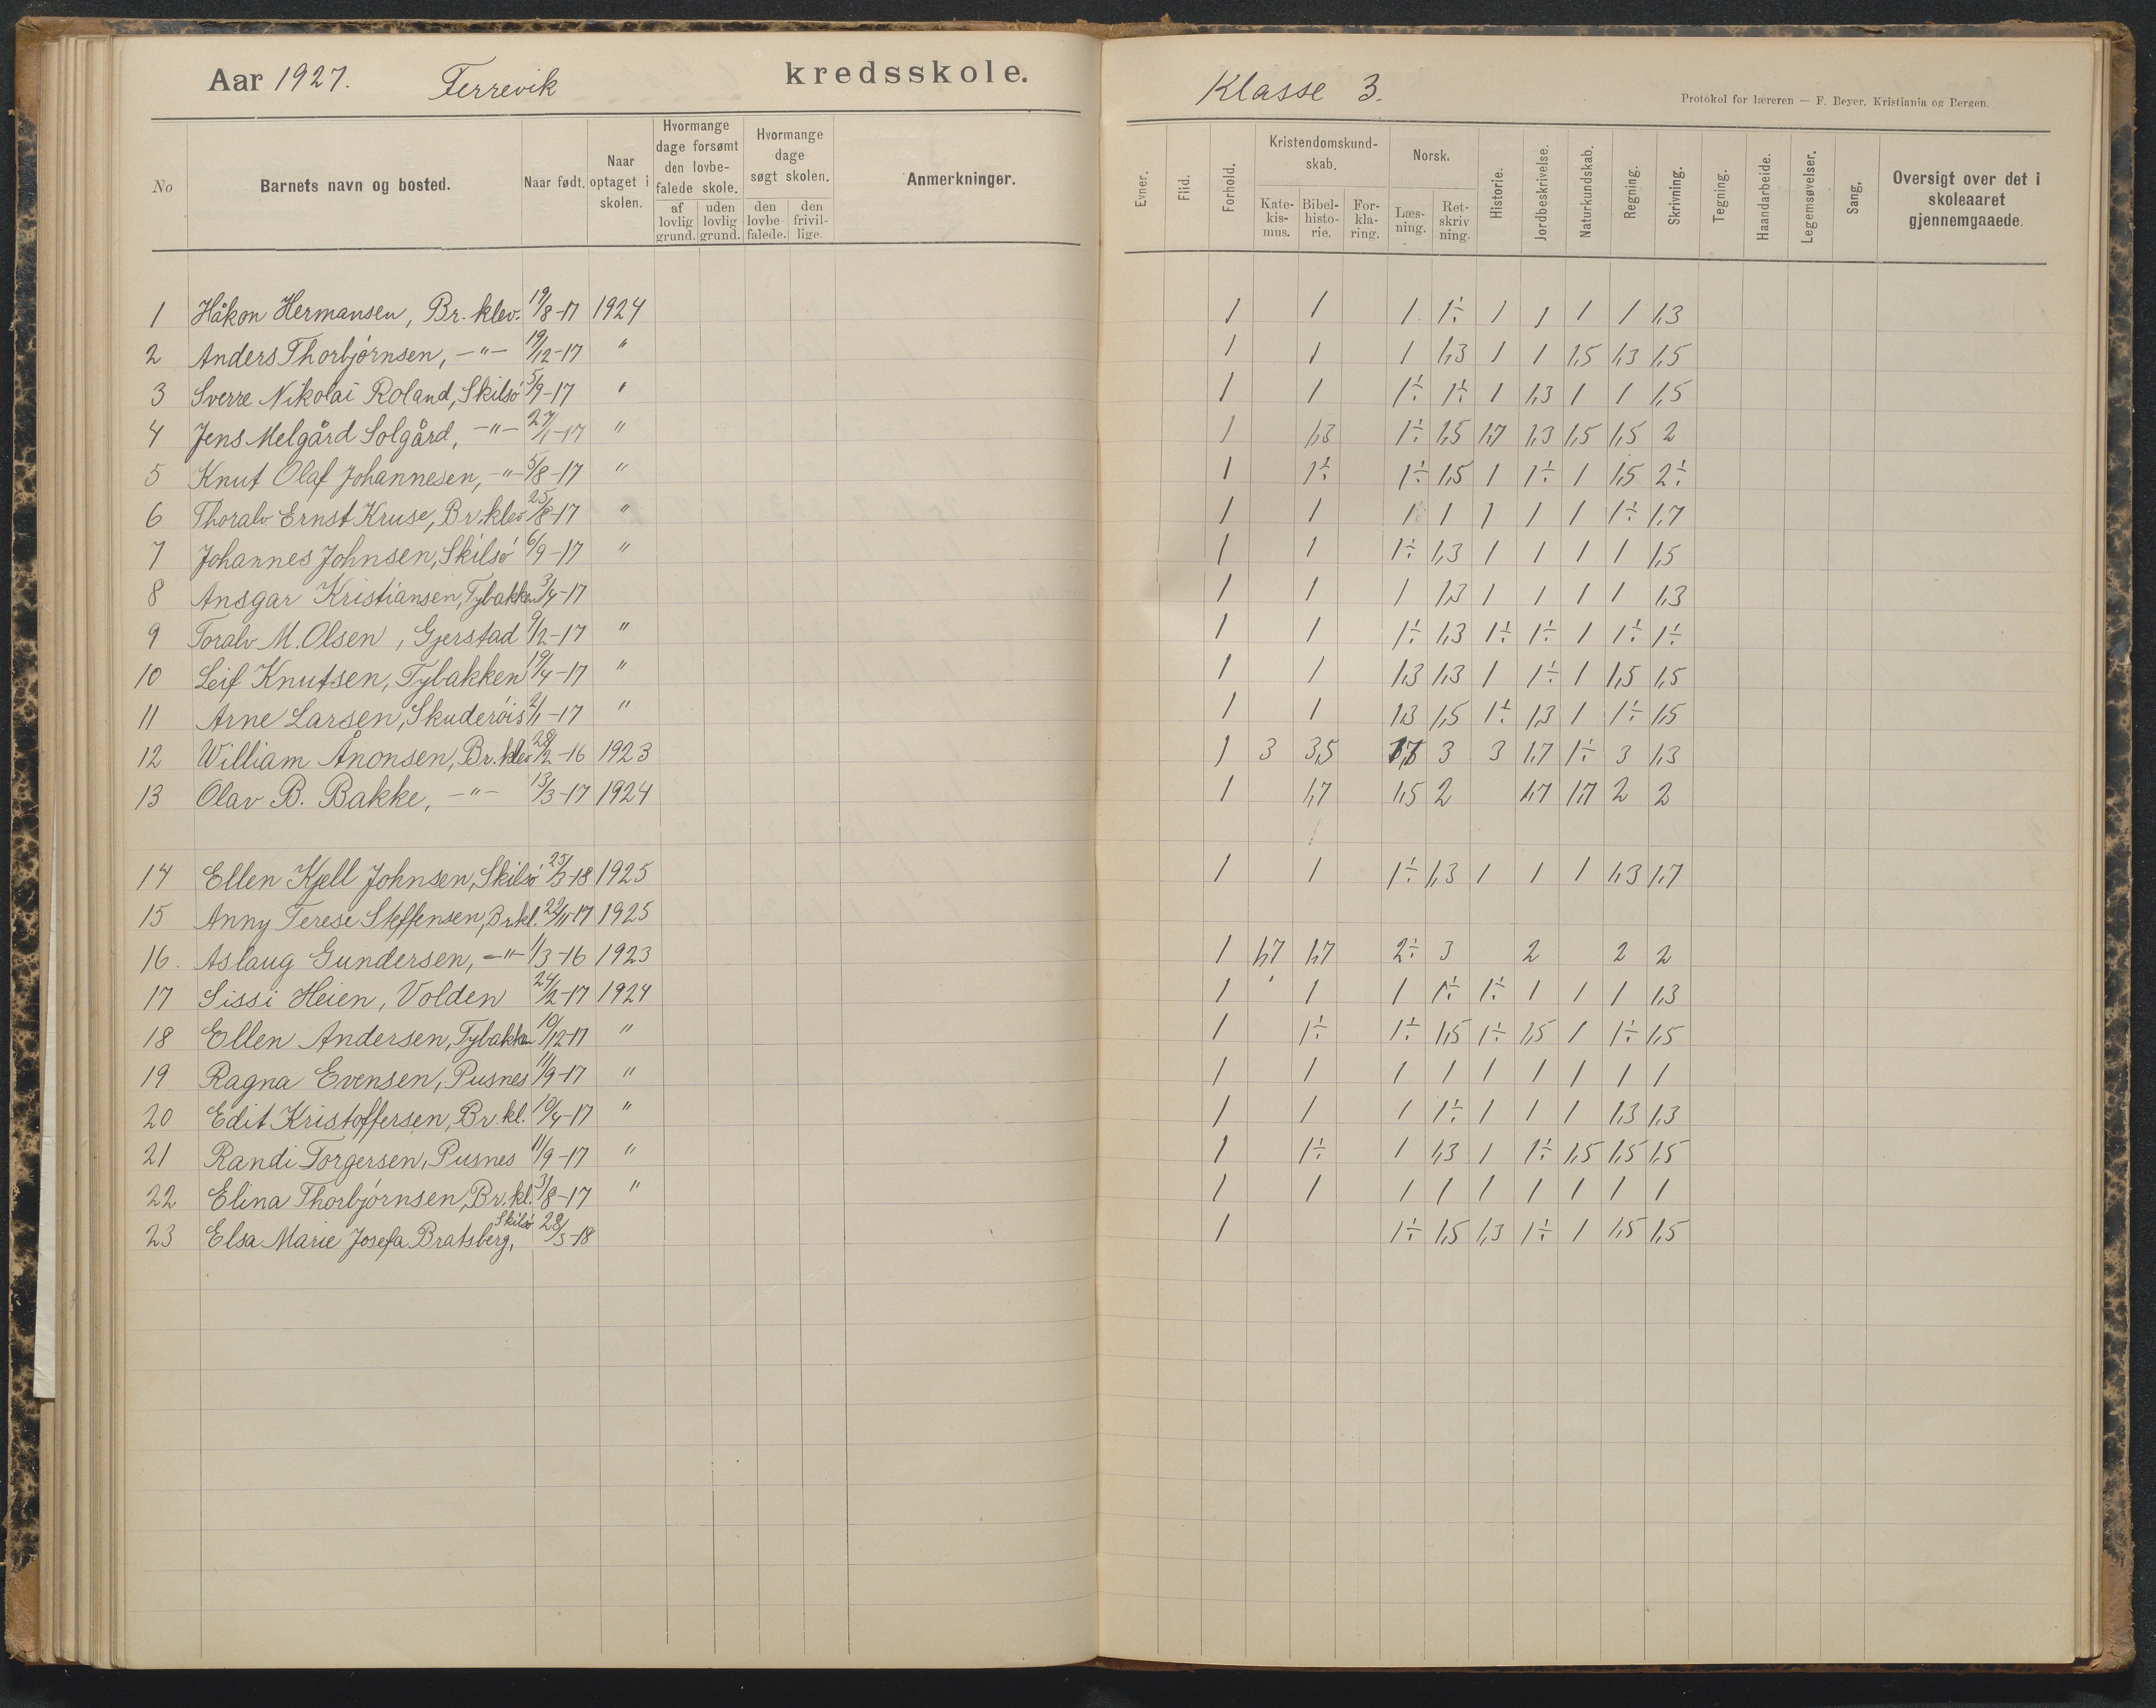 Aar 1927. Ferrevik kredsskole.
Klasse 3.
Protokol for læreren — F. Beyer, Kristiania og Bergen.
No
Barnets navn og bosted.
Naar født.
Naar optaget i skolen.
Hvormange dage forsømt den lovbefalede skole.
af lovlig grund.
uden lovlig grund.
Hvormange dage søgt skolen.
den lovbefalede.
den frivillige.
Anmerkninger.
Evner.
Flid.
Forhold.
Kristendomskundskab.
Katekismus.
Bibelhistorie.
Forklaring.
Norsk.
Læsning.
Retskrivning.
Historie.
Jordbeskrivelse.
Naturkundskab.
Regning.
Skrivning.
Tegning.
Haandarbeide.
Legemsøvelser.
Sang.
Oversigt over det i skoleaaret gjennemgaaede.
1 Håkon Hermansen, Br. klev. 19/8-17 1924 1 1 1 1÷ 1 1 1 1 1,3
2 Anders Thorbjørnsen, -"- 19/12-17 " 1 1 1 1,3 1 1 1,5 1,3 1,5
3 Sverre Nikolai Roland, Skilsö 5/9-17 " 1 1 1÷ 1÷ 1 1,3 1 1 1,5
4 Jens Melgård Solgård, -"- 27/1-17 " 1 1,3 1÷ 1,5 1,7 1,3 1,5 1,5 2
5 Knut Olaf Johannesen, -"- 5/8-17 " 1 1÷ 1÷ 1,5 1 1÷ 1 1,5 2÷
6 Thoralv Ernst Kruse, Br. klev 25/8-17 " 1 1 1 1 1 1 1 1÷ 1,7
7 Johannes Johnsen, Skilsö 6/9-17 " 1 1 1÷ 1,3 1 1 1 1 1,5
8 Ansgar Kristiansen, Tybakken 3/4-17 1 1 1 1,3 1 1 1 1 1,3
9 Toralv M. Olsen, Gjerstad 9/12-17 " 1 1 1÷ 1,3 1÷ 1÷ 1 1÷ 1÷
10 Leif Knutsen, Tybakken 19/4-17 " 1 1 1,3 1,3 1 1÷ 1 1,5 1,5
11 Arne Larsen, Skuderöis 2/1-17 " 1 1 1,3 1,5 1÷ 1,3 1 1÷ 1,5
12 William Ånonsen, Br. klev 28/2-16 1923 1 3 3,5 3 3 1,7 1÷ 3 1,3
13 Olav B. Bakke, -"- 13/3-17 1924 1 1,7 1,5 2 1,7 1,7 2 2
14 Ellen Kjell Johnsen, Skilsö 25/3-18 1925 1 1 1÷ 1,3 1 1 1 1,3 1,7
15 Anny Terese Steffensen, Br kl. 22/11-17 1925
16. Aslaug Gundersen, -"- 1/3-16 1923 1 1,7 1,7 2÷ 3 2 2 2
17 Sissi Heien, Volden 24/2-17 1924 1 1 1 1÷ 1÷ 1 1 1 1,3
18 Ellen Andersen, Tybakken 10/12-17 " 1 1÷ 1÷ 1,5 1÷ 1,5 1 1÷ 1,5
19 Ragna Evensen, Pusnes 11/9-17 " 1 1 1 1 1 1 1 1 1
20 Edit Kristoffersen, Br. kl. 10/4-17 " 1 1 1 1÷ 1 1 1 1,3 1,3
21 Randi Torgersen, Pusnes 11/9-17 " 1 1÷ 1 1,3 1 1÷ 1,5 1,5 1,5
22 Elina Thorbjørnsen, Br. kl. 3/8-17 " 1 1 1 1 1 1 1 1 1
23 Elsa Marie Josefa Bratsberg, Skilsö 28/3-18 1 1÷ 1,5 1,3 1÷ 1 1,5 1,5